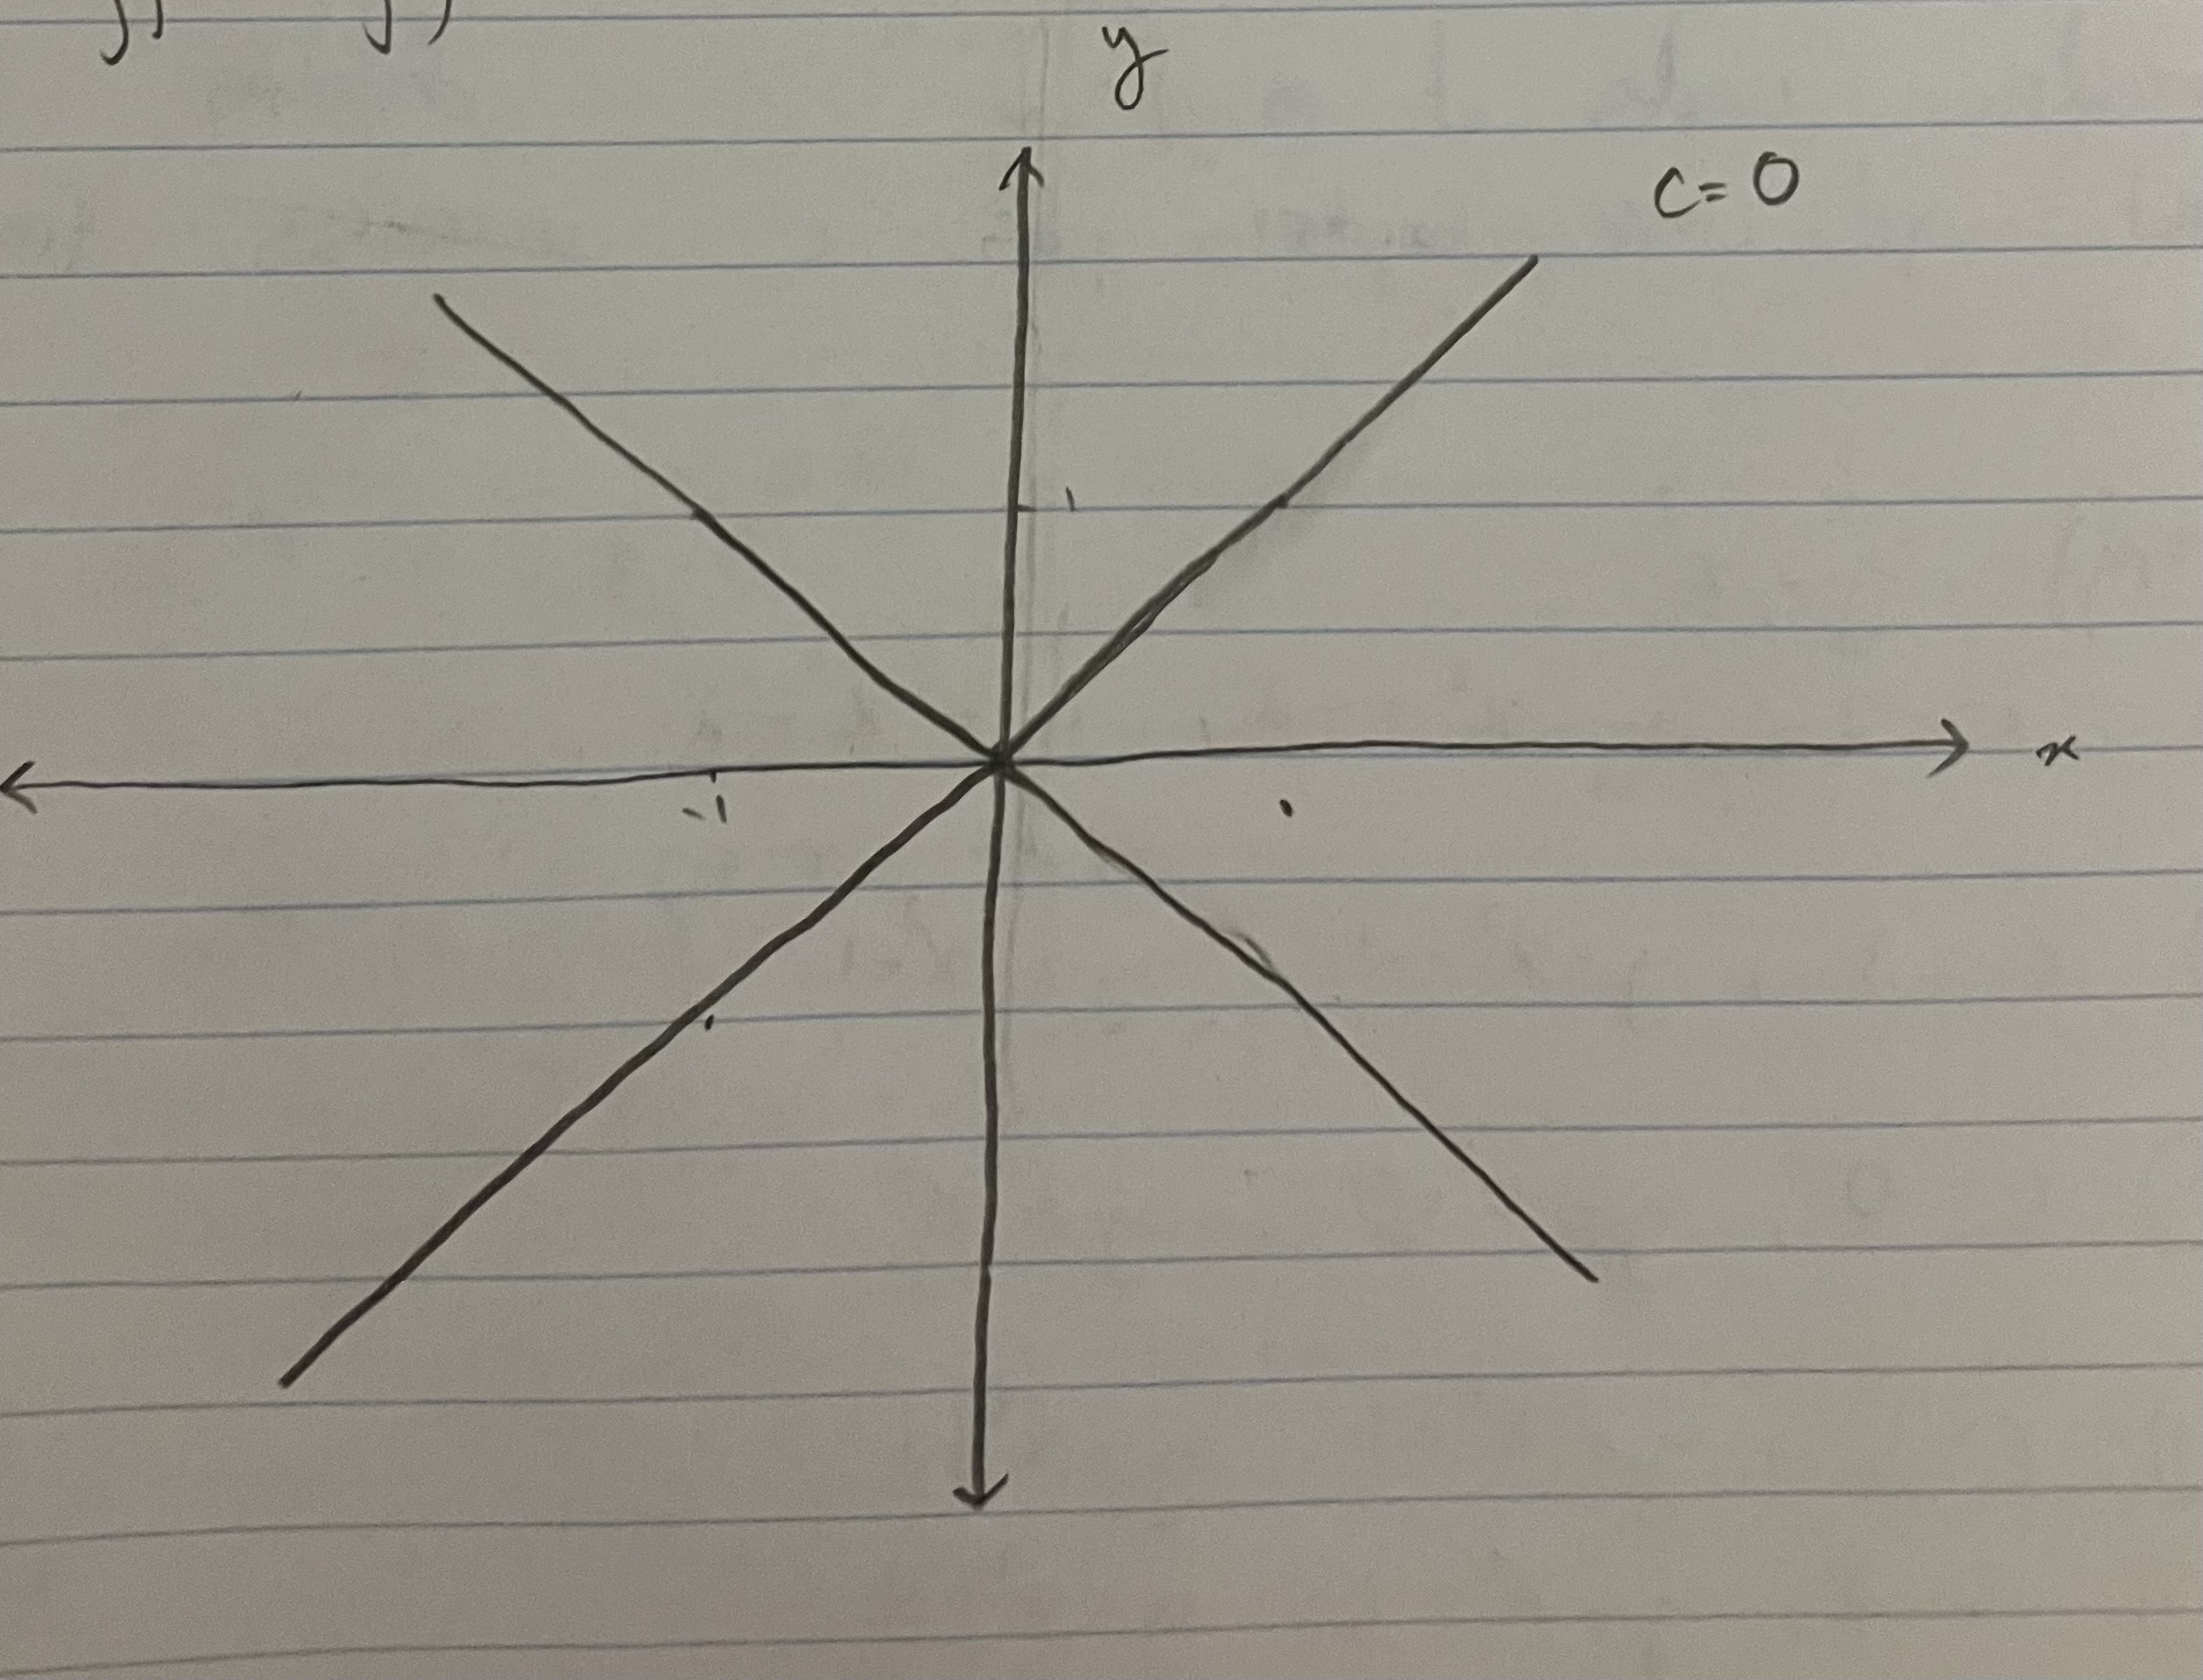 y
c= 0
1
x
-1